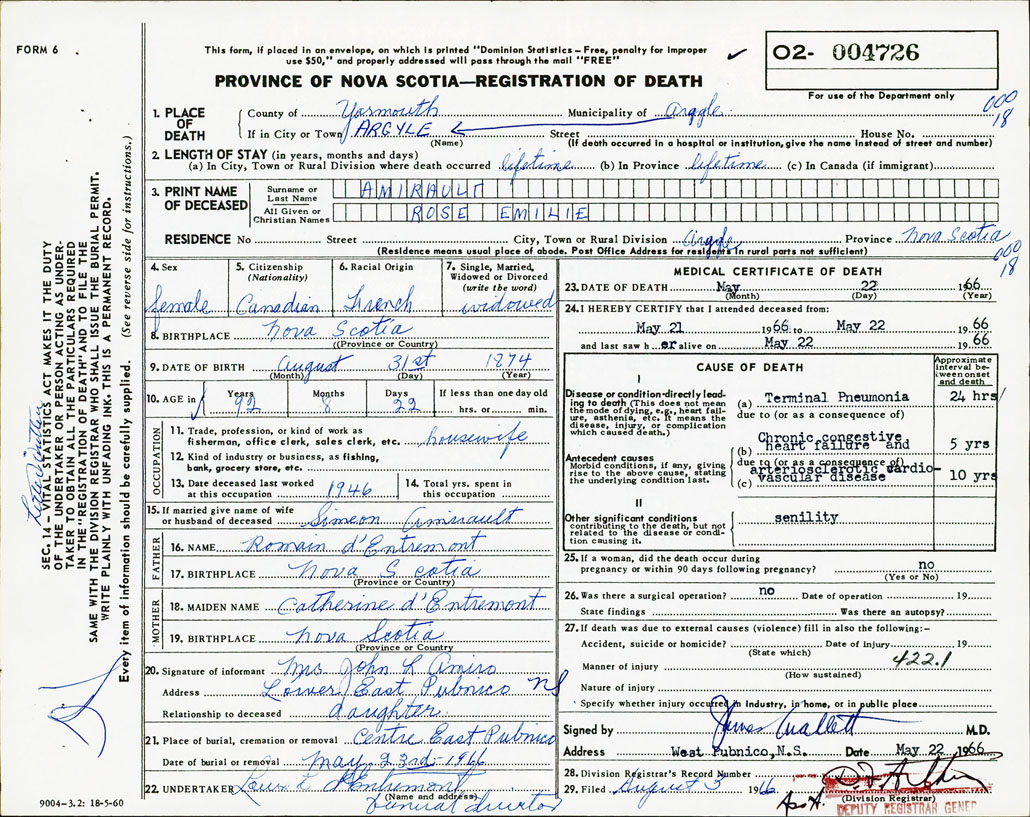 FORM 6
This form, if placed in an envelope, on which is printed "Dominion Statistics – Free, penalty for improper
use $50," and properly addressed will pass through the mail "FREE"
✓
O2- 004726
For use of the Department only
PROVINCE OF NOVA SCOTIA—REGISTRATION OF DEATH
000
18
1. PLACE OF DEATH
County of Yarmouth Municipality of Argyle
If in City or Town ARGYLE Street House No.
(Name) (If death occurred in a hospital or institution, give the name instead of street and number)
2. LENGTH OF STAY (in years, months and days)
(a) In City, Town or Rural Division where death occurred lifetime (b) In Province lifetime (c) In Canada (if immigrant)
3. PRINT NAME OF DECEASED
Surname or Last Name AMIRAULT
All Given or Christian Names ROSE EMILIE
RESIDENCE No Street City, Town or Rural Division Argyle Province Nova Scotia
(Residence means usual place of abode. Post Office Address for residents in rural parts not sufficient)
000
18
4. Sex female
5. Citizenship (Nationality) Canadian
6. Racial Origin French
7. Single, Married, Widowed or Divorced (write the word) widowed
8. BIRTHPLACE Nova Scotia
((Province or Country)
9. DATE OF BIRTH August 31st 1874
(Month) (Day) (Year)
10. AGE in Years Months Days If less than one day old
92 8 22 hrs. or min.
OCCUPATION
11. Trade, profession, or kind of work as
fisherman, office clerk, sales clerk, etc. housewife
12. Kind of industry or business, as fishing,
bank, grocery store, etc.
13. Date deceased last worked
at this occupation 1946
14. Total yrs. spent in
this occupation
15. If married give name of wife
or husband of deceased Simeon Amirault
FATHER
16. NAME Romain d'Entremont
17. BIRTHPLACE Nova Scotia
(Province or Country)
MOTHER
18. MAIDEN NAME Catherine d'Entremont
19. BIRTHPLACE Nova Scotia
(Province or Country
20. Signature of informant Mrs John L Amiro
Address Lower East Pubnico NS
Relationship to deceased daughter
21. Place of burial, cremation or removal Centre East Pubnico
Date of burial or removal May 23rd 1966
22. UNDERTAKER d'Entremont
(Name and address)
Funeral director
9004–3.2: 18-5-60
MEDICAL CERTIFICATE OF DEATH
23. DATE OF DEATH May 22 1966
(Month) (Day) (Year)
24. I HEREBY CERTIFY that I attended deceased from:
May 21 1966 to May 22 1966
and last saw h er alive on May 22 1966
CAUSE OF DEATH
Approximate interval between onset and death
I
Disease or condition-directly leading to death (This does not mean the mode of dying, e.g., heart failure, asthenia, etc. It means the disease, injury, or complication which caused death.)
(a) Terminal Pneumonia 24 hrs
due to (or as a consequence of)
Antecedent causes
Morbid conditions, if any, giving rise to the above cause, stating the underlying condition last.
(b) Chronic congestive heart failure and 5 yrs
due to (or as a consequence of)
(c) arteriosclerotic cardio-vascular disease 10 yrs
II
Other significant conditions contributing to the death, but not related to the disease or condition causing it.
senility
25. If a woman, did the death occur during
pregnancy or within 90 days following pregnancy? no
(Yes or No)
26. Was there a surgical operation? no Date of operation 19
State findings Was there an autopsy?
27. If death was due to external causes (violence) fill in also the following:–
Accident, suicide or homicide? Date of injury 19
(State which)
Manner of injury 422.1
(How sustained)
Nature of injury
Specify whether injury occurred in Industry, in home, or in public place
Signed by M.D.
Address West Pubnico, N.S. Date May 22 1966
28. Division Registrar's Record Number
29. Filed August 3 1966
(Division Registrar)
DEPUTY REGISTRAR GENER
SEC. 14 – VITAL STATISTICS ACT MAKES IT THE DUTY
OF THE UNDERTAKER OR PERSON ACTING AS UNDER-
TAKER TO OBTAIN ALL THE PARTICULARS REQUIRED
IN THE "REGISTRATION OF DEATH" AND TO FILE THE
SAME WITH THE DIVISION REGISTRAR WHO SHALL ISSUE THE BURIAL PERMIT.
WRITE PLAINLY WITH UNFADING INK. THIS IS A PERMANENT RECORD.
Every item of information should be carefully supplied. (See reverse side for instructions.)